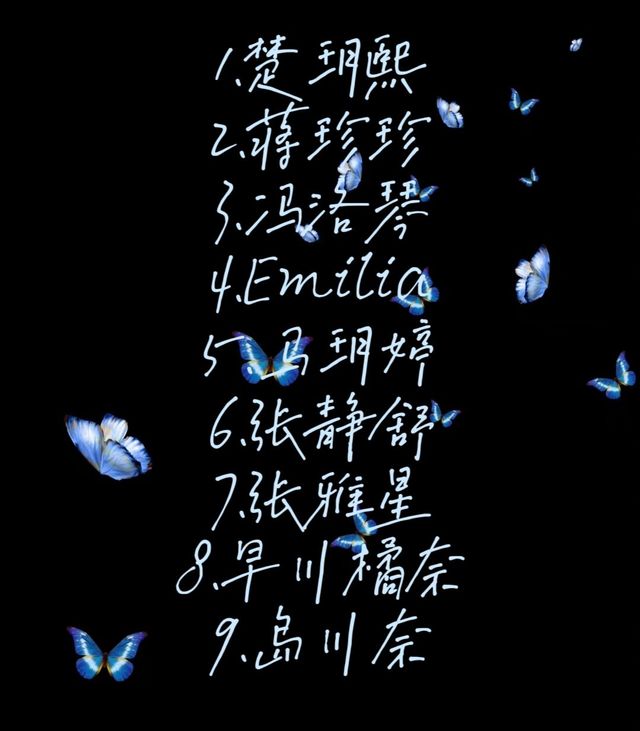 1.楚玥熙
2.蒋珍珍
3.冯洛琴
4.Emilia
5.马玥婷
6.张静舒
7.张雅星
8.早川橘奈
9.岛川奈